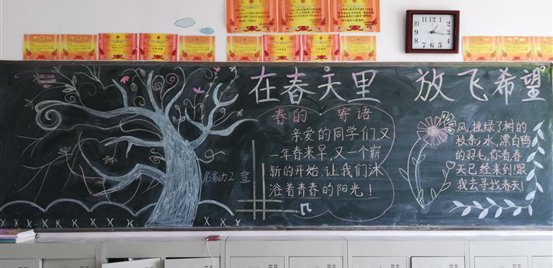 在春天里 放飞希望
春的寄语
亲爱的同学们又
一年春来早,又一个崭
新的开始,让我们沐
浴着青春的阳光!
风,挂绿了树的
枝条;水,漂白鸭
的羽毛,你看,春
天已经来到!跟
我去寻找春天!